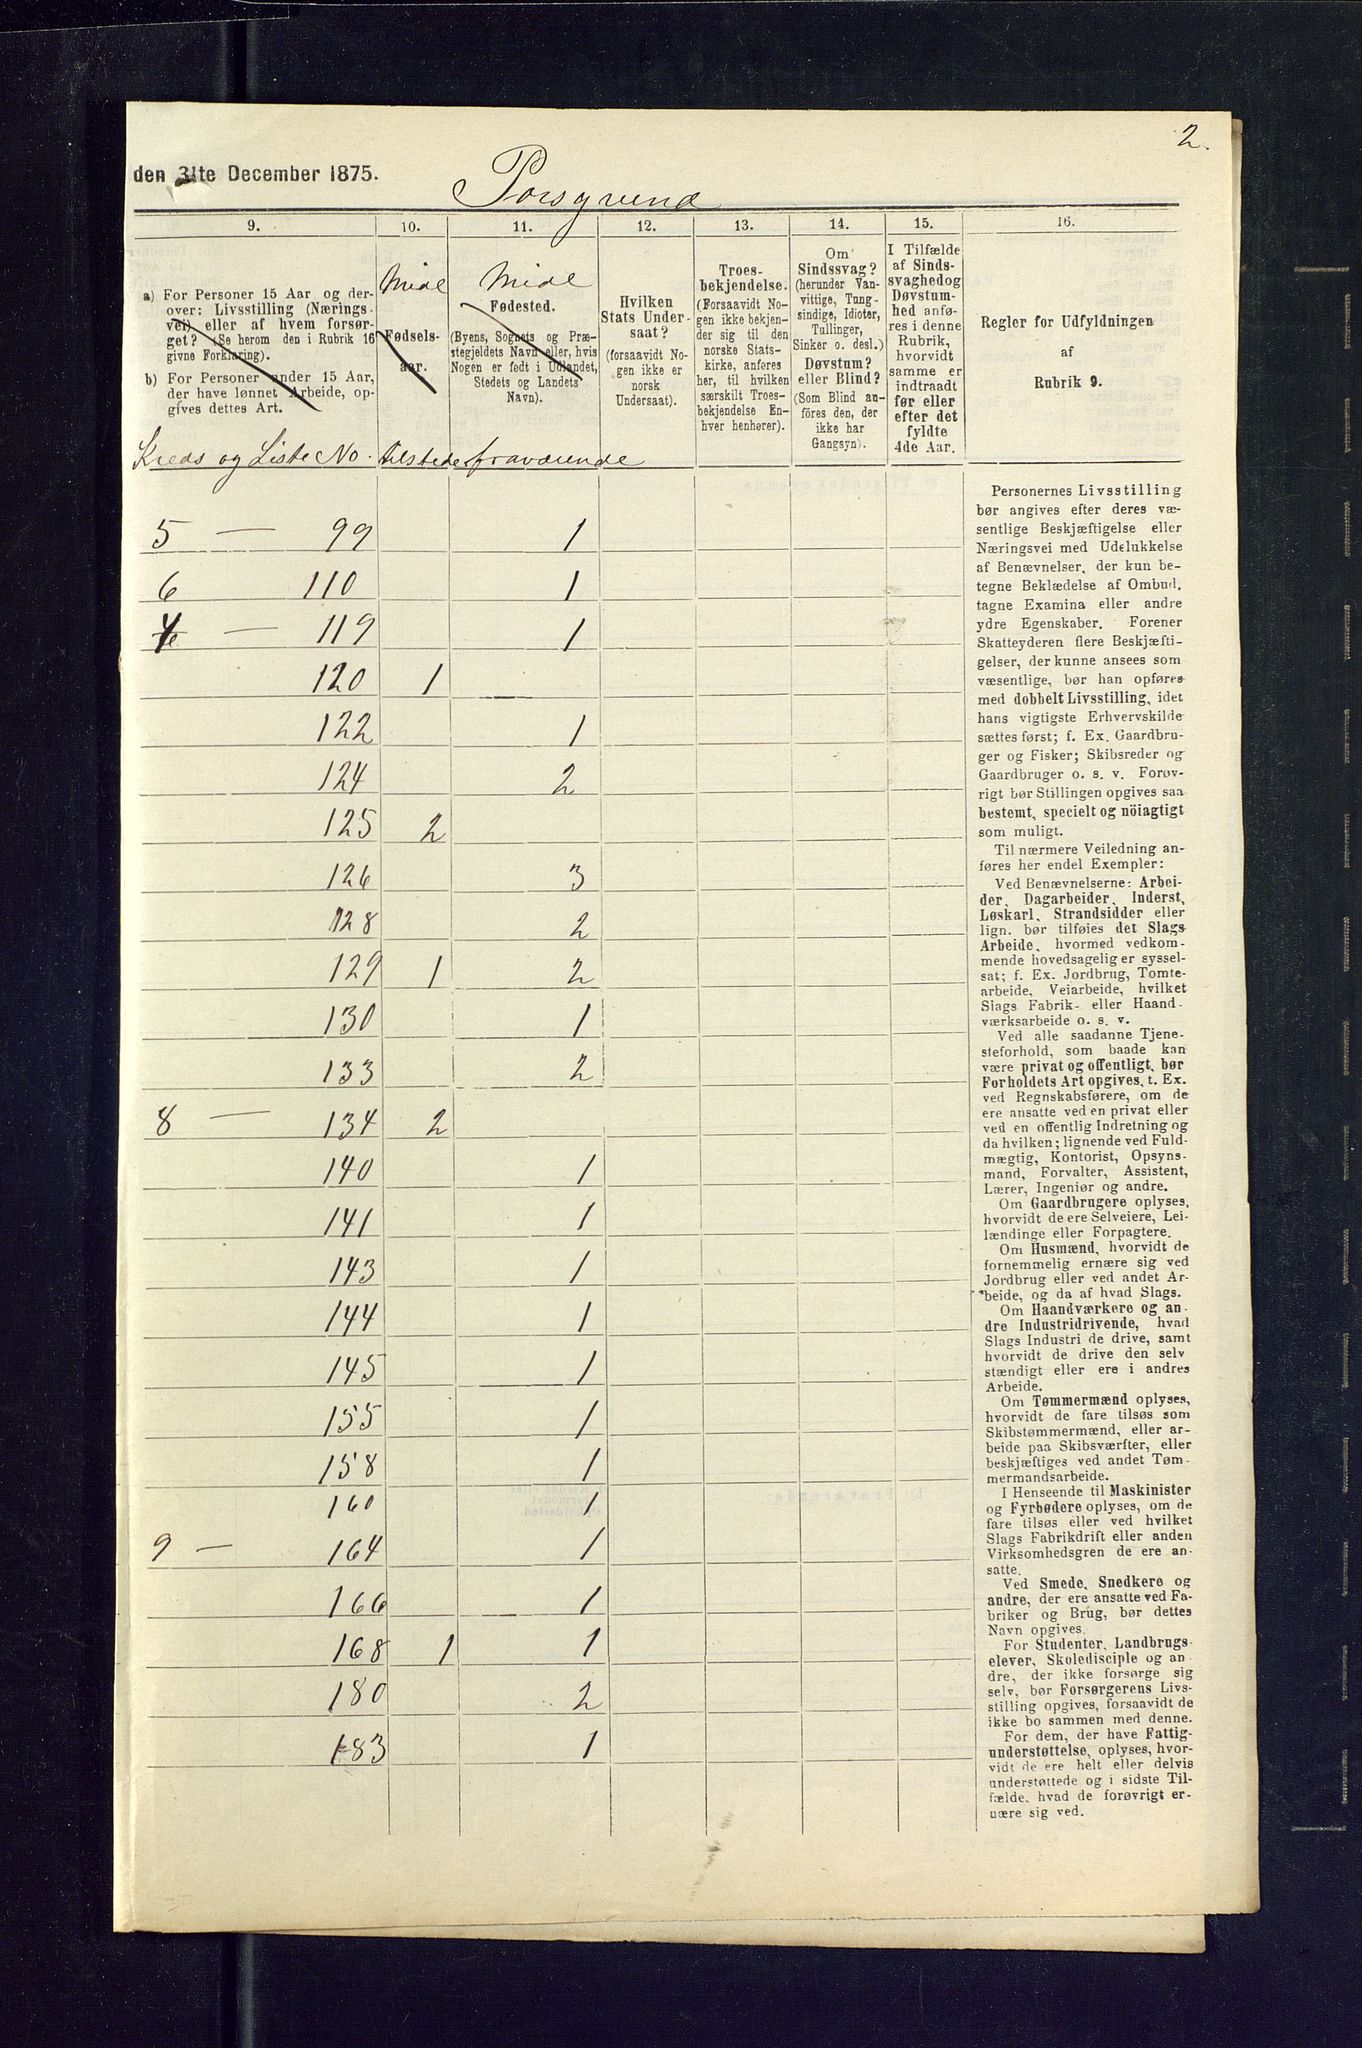 2.
den 31te December 1875.
Porsgrund
9.
10.
11.
12.
13.
14.
15.
16.
a) For Personer 15 Aar og der-
over: Livsstilling (Nærings-
vei) eller af hvem forsør-
get? (Se herom den i Rubrik 16
givne Forklaring).
b) For Personer under 15 Aar,
der have lønnet Arbeide, op-
gives dettes Art.
Midl
Fødsels-
aar.
Midl
Fødested.
(Byens, Sognets og Præ-
stegjeldets Navn eller, hvis
Nogen er født i Udlandet,
Stedets og Landets
Navn).
Hvilken
Stats Under-
saat?
(forsaavidt No-
gen ikke er
norsk
Undersaat).
Troes-
bekjendelse.
(Forsaavidt No-
gen ikke bekjen-
der sig til den
norske Stats-
kirke, anføres
her, til hvilken
særskilt Troes-
bekjendelse En-
hver henhører).
Om
Sindssvag?
(herunder Van-
vittige, Tung-
sindige, Idioter,
Tullinger,
Sinker o. desl.)
Døvstum?
eller Blind?
(Som Blind an-
föres den, der
ikke har
Gangsyn).
I Tilfælde
af Sinds-
svaghed og
Døvstum-
hed anfø-
res i denne
Rubrik,
hvorvidt
samme er
indtraadt
før eller
efter det
fyldte
4de Aar.
Regler for Udfyldningen
af
Rubrik 9.
Kreds og Liste No. tilstede fraværende
5 — 99 1
6 110 1
— 119 1
120 1
122 1
124 2
125 2
126 3
128 2
129 1 2
130 1
133 2
8 — 134 2
140 1
141 1
143 1
144 1
145 1
155 1
158 1
160 1
9 — 164 1
166 1
168 1 1
180 2
183 1
Personernes Livsstilling
bør angives efter deres væ-
sentlige Beskjæftigelse eller
Næringsvei med Udelukkelse
af Benævnelser, der kun be-
tegne Beklædelse af Ombud,
tagne Examina eller andre
ydre Egenskaber. Forener
Skatteyderen flere Beskjæfti-
gelser, der kunne ansees som
væsentlige, bør han opføres
med dobbelt Livsstilling, idet
hans vigtigste Erhvervskilde
sættes først; f. Ex. Gaardbru-
ger og Fisker; Skibsreder og
Gaardbruger o. s. v. Forøv-
rigt bør Stillingen opgives saa
bestemt, specielt og nöiagtigt
som muligt.
Til nærmere Veiledning an-
føres her endel Exempler:
Ved Benævnelserne: Arbei-
der, Dagarbeider, Inderst,
Løskarl, Strandsidder eller
lign. bør tilføies det Slags
Arbeide, hvormed vedkom-
mende hovedsagelig er syssel-
sat; f. Ex. Jordbrug, Tomte-
arbeide, Veiarbeide, hvilket
Slags Fabrik- eller Haand-
værksarbeide o. s. v.
Ved alle saadanne Tjene-
steforhold, som baade kan
være privat og offentligt, bør
Forholdets Art opgives, t. Ex.
ved Regnskabsførere, om de
ere ansatte ved en privat eller
ved en offentlig Indretning og
da hvilken; lignende ved Fuld-
mægtig, Kontorist, Opsyns-
mand, Forvalter, Assistent,
Lærer, Ingeniør og andre.
Om Gaardbrugere oplyses,
hvorvidt de ere Selveiere, Lei-
lændinge eller Forpagtere.
Om Husmænd, hvorvidt de
fornemmelig ernære sig ved
Jordbrug eller ved andet Ar-
beide, og da af hvad Slags.
Om Haandværkere og an-
dre Industridrivende, hvad
Slags Industri de drive, samt
hvorvidt de drive den selv-
stændigt eller ere i andres
Arbeide.
Om Tømmermænd oplyses,
hvorvidt de fare tilsøs som
Skibstømmermænd, eller ar-
beide paa Skibsværfter, eller
beskjæftiges ved andet Tøm-
mermandsarbeide.
I Henseende til Maskinister
og Fyrbødere oplyses, om de
fare tilsøs eller ved hvilket
Slags Fabrikdrift eller anden
Virksomhedsgren de ere an-
satte.
Ved Smede, Snedkere og
andre, der ere ansatte ved Fa-
briker og Brug, bør dettes
Navn opgives.
For Studenter, Landbrugs-
elever, Skoledisciple og an-
dre, der ikke forsørge sig
selv, bør Forsørgerens Livs-
stilling opgives, forsaavidt de
ikke bo sammen med denne.
For dem, der have Fattig-
understøttelse, oplyses, hvor-
vidt de ere helt eller delvis
understøttede og i sidste Til-
fælde, hvad de forøvrigt er-
nære sig ved.